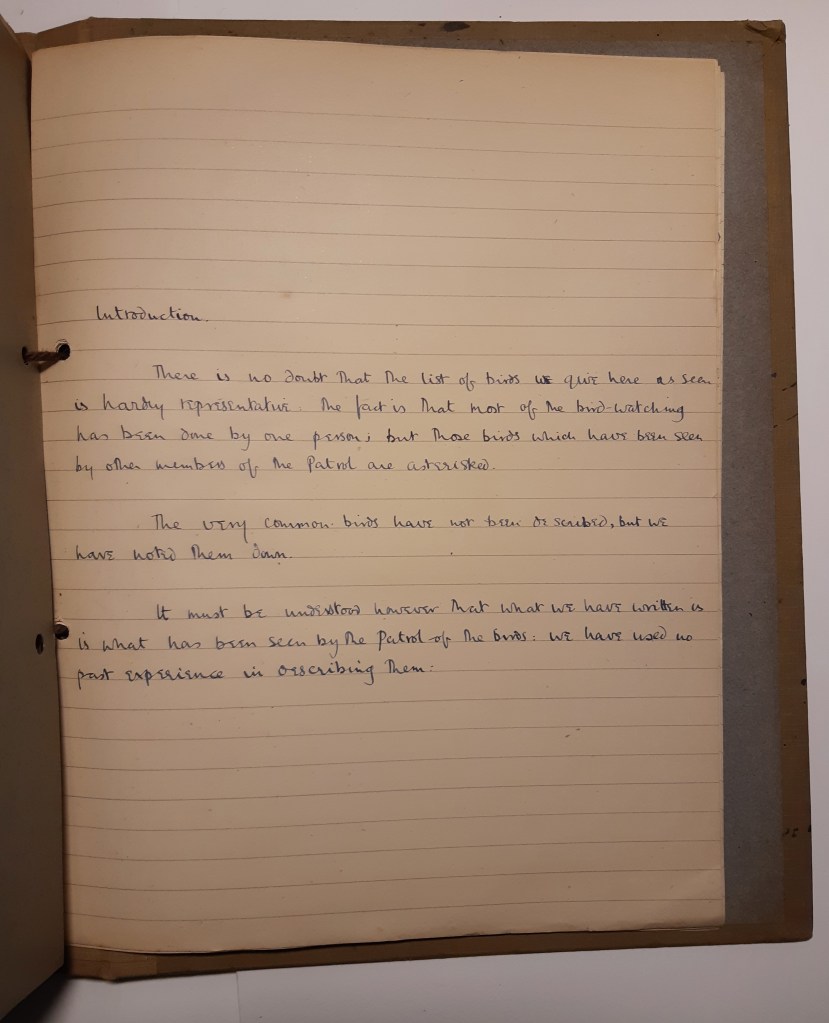 Introduction.
There is no doubt that the list of birds we give here as seen
is hardly representative. The fact is that most of the bird-watching
has been done by one person; but those birds which have been seen
by other members of the Patrol are asterisked.
The very common birds have not been described, but we
have noted them down.
It must be understood however that what we have written is
is what has been seen by the Patrol of the birds: we have used no
past experience in describing them.